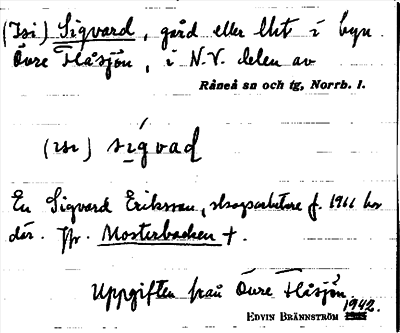 (Isi) Sigvard, gård eller lht i byn
Övre Flåsjön, i N.V. delen av
Råneå sn och tg, Norrb. l.
(isi) sígvad
En Sigvard Eriksson, skogsarbetare f. 1911 bor
där. Jfr. Mosterbacken +.
Uppgiften från Övre Flåsjön,
1942.
EDVIN BRÄNNSTRÖM